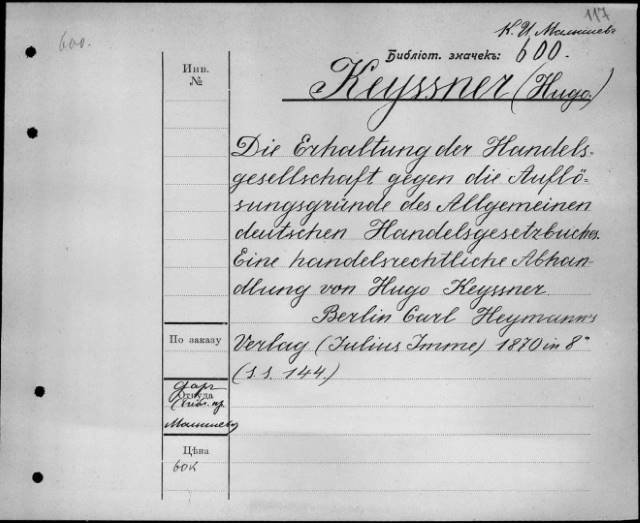 117
К. И. Малышевъ
600.
Библіот. значекъ: 600.
Инв.
№
Keyssner (Hugo)
Die Erhaltung der Handels-
gesellschaft gegen die Auflö-
sungsgründe des Allgemeinen
deutschen Handelsgesetzbuches.
Eine handelsrechtliche Abhan-
dlung von Hugo Keyssner.
Berlin Carl Heymann's
По заказу
Verlag (Julius Imme) 1870 in 8°
(s.s. 144)
даръ
Откуда
(библ. пр.
Малышева)
Цѣна
60к